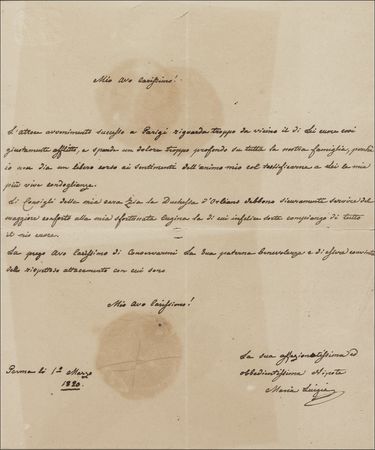 Mio Avo Carissimo!
L'atroce avvenimento successo a Parigi riguarda troppo da vicino il di Lei cuore così
giustamente afflitto, e spande un dolore troppo profondo su tutta la nostra famiglia, perchè
io non dia un libero corso ai sentimenti dell'animo mio col testificarne a Lei le mie
più vive condoglianze.
I Consigli della mia cara Zia la Duchessa d'Orleans debbono sicuramente servire del
maggiore conforto alla mia sfortunata Cugina la di cui infelice sorte compiango di tutto
il mio cuore.
La prego Avo Carissimo di Conservarmi La Sua paterna benevolenza e di essere convinto
del rispettoso attaccamento con cui sono
Mio Avo Carissimo!
Parma li 1º Marzo
1820.
La sua affezionatissima ed
obbedientissima Nipote
Maria Luigia